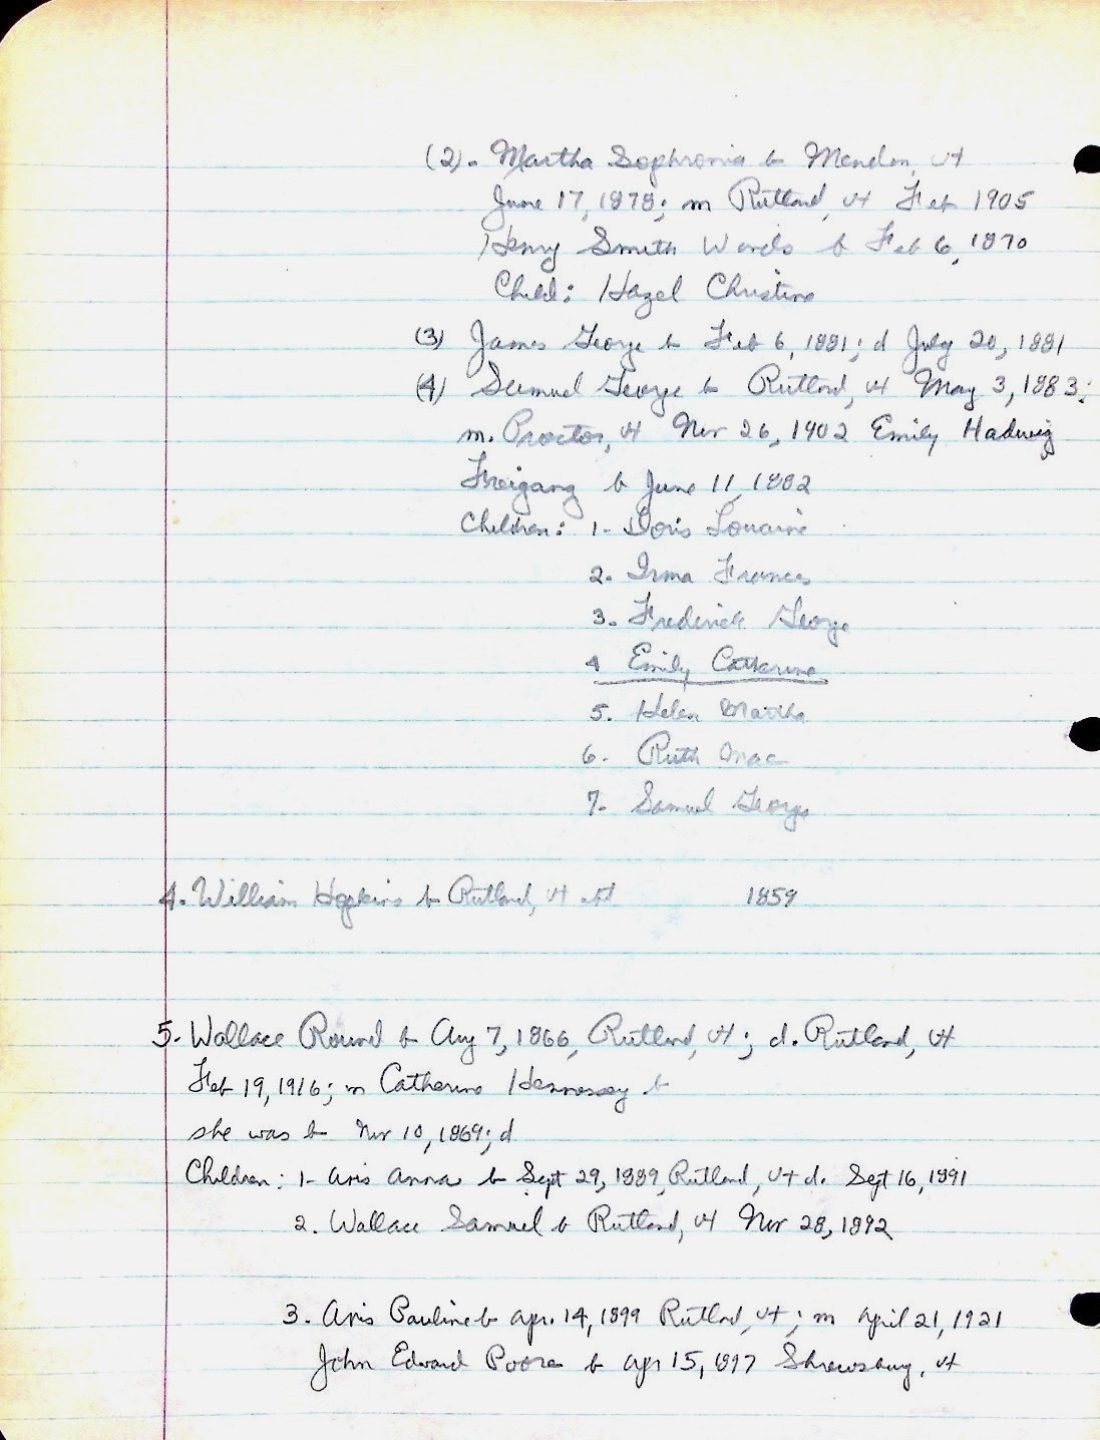 (2). Martha Sophronia b Mendon, Vt
June 17, 1878; m Rutland, Vt Feb 1905
Henry Smith Wards b Feb 6, 1870
Child: Hazel Christine
(3) James George b Feb 6, 1881; d July 20, 1881
(4) Samuel George b Rutland, Vt May 3, 1883;
m. Proctor, Vt Nov 26, 1902 Emily Hadwig
Freigang b June 11, 1882
Children: 1- Doris Louraine
2. Irma Frances
3. Frederick George
4 Emily Catharine
5. Helen Martha
6. Ruth Mae
7. Samuel George
4. William Hopkins b Rutland, Vt abt 1859
5. Wallace Round b Aug 7, 1866, Rutland, Vt; d. Rutland, Vt
Feb 19, 1916; m Catherine Hennessey b
she was b Nov 10, 1869; d
Children: 1- Avis Anna b Sept 29, 1889, Rutland, Vt d. Sept 16, 1891
2. Wallace Samuel b Rutland, Vt Nov 28, 1892
3. Avis Pauline b Apr. 14, 1899 Rutland, Vt; m April 21, 1921
John Edward Poore b Apr 15, 1897 Shrewsbury, Vt